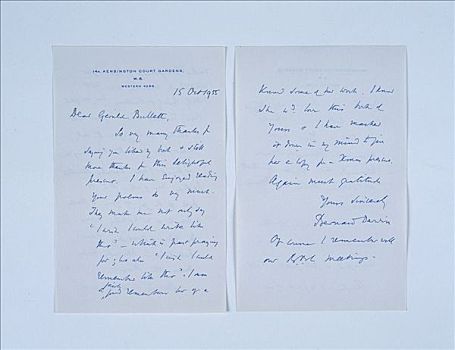 14A KENSINGTON COURT GARDENS,
W.8.
WESTERN
15 Oct 1955
Dear Gerald Bullett,
So very many thanks for
saying you liked my book & still
more thanks for this delightful
present. I have enjoyed reading
your poems so very much.
They made me not only say
"I wish I could write like
this" – which is poor praising
for you also "I wish I could
remember like this". I am
good remembrance of a
know some of her work. I know
she wd. love this book of
yours & I have marked
it down in my mind to give
her a copy for a Xmas present.
Again much gratitude
Yours sincerely
Bernard Darwin
Of course I remember well
our meetings.